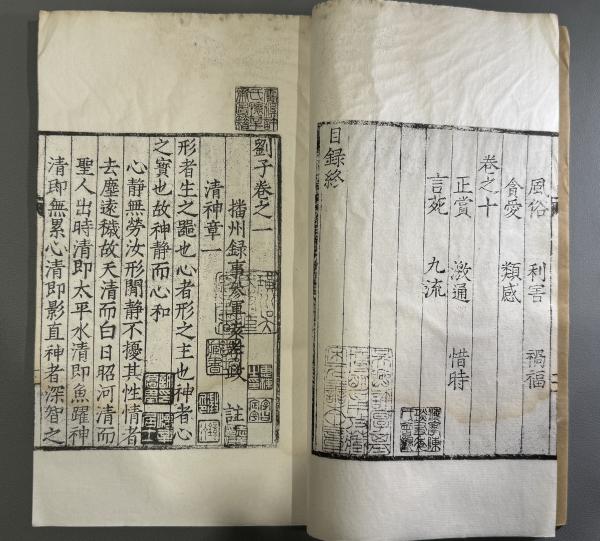 風俗 利害 禍福
貪愛 類感
卷之十
正賞 激通 惜時
言苑 九流
目録終
劉子卷之一
播州録事參軍袁孝政 註
清神章一
形者生之器也心者形之主也神者心
之寳也故神静而心和
心静無勞汝形閑静不擾其性情者
去塵遠穢故天清而白日昭河清而
聖人出時清即太平水清即魚躍神
清即無累心清即影直神者深智之